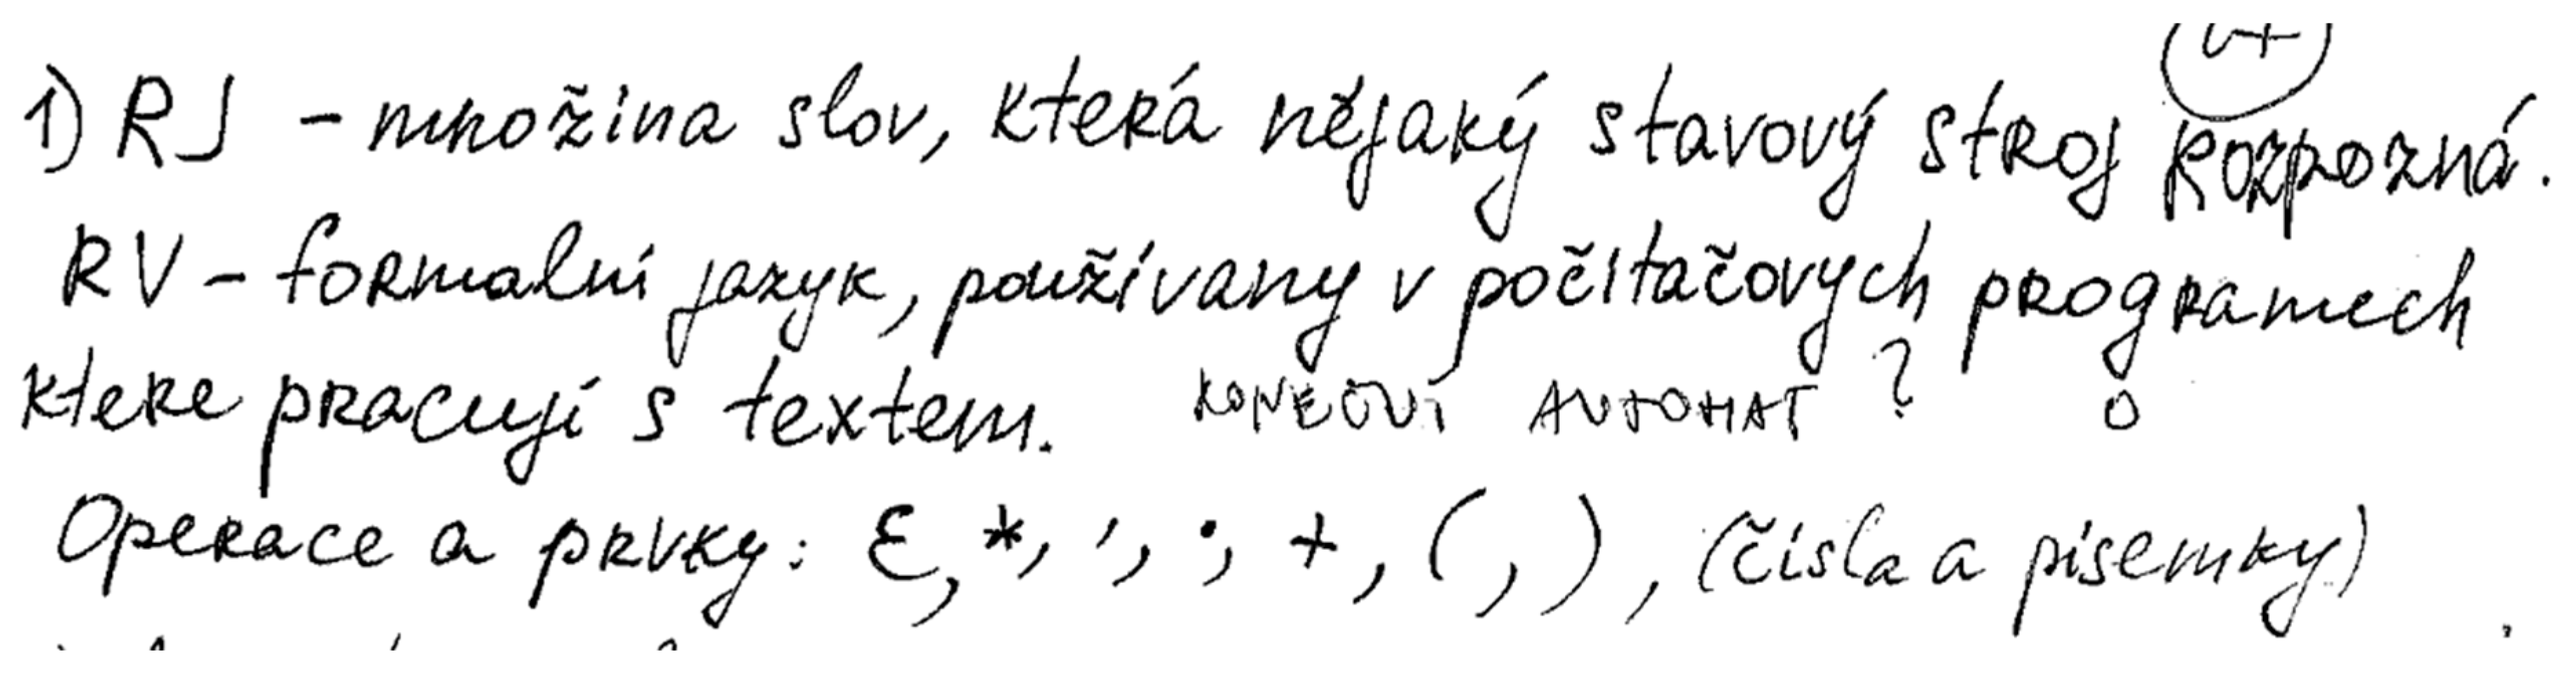 1) RJ - množina slov, která nějaký stavový stroj rozpozná.
RV - formalní jazyk, použivany v počítačových programech
ktere pracují s textem. KONEČNÍ AUTOMAT ? 0
Operace a prvky: ε, *, ', •, +, (, ), (čísla a písemky)